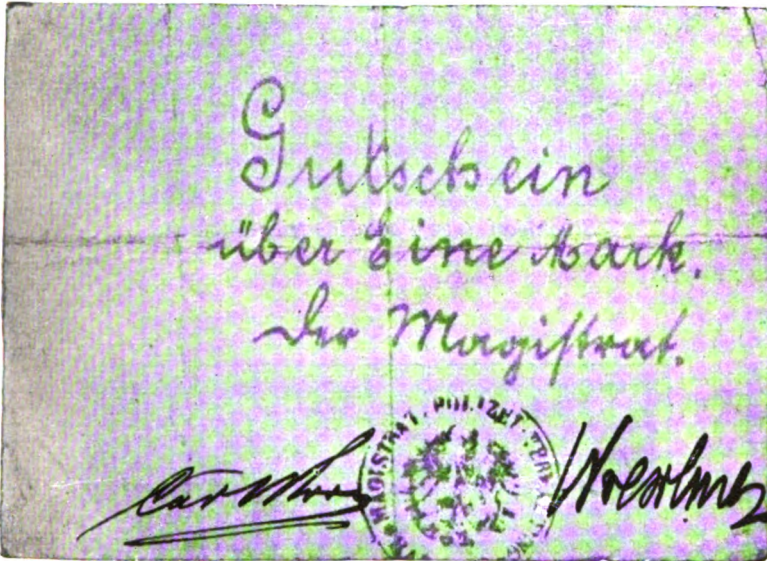 Gutschein
über Eine Mark.
Der Magistrat.
MAGISTRAT. POLIZEI